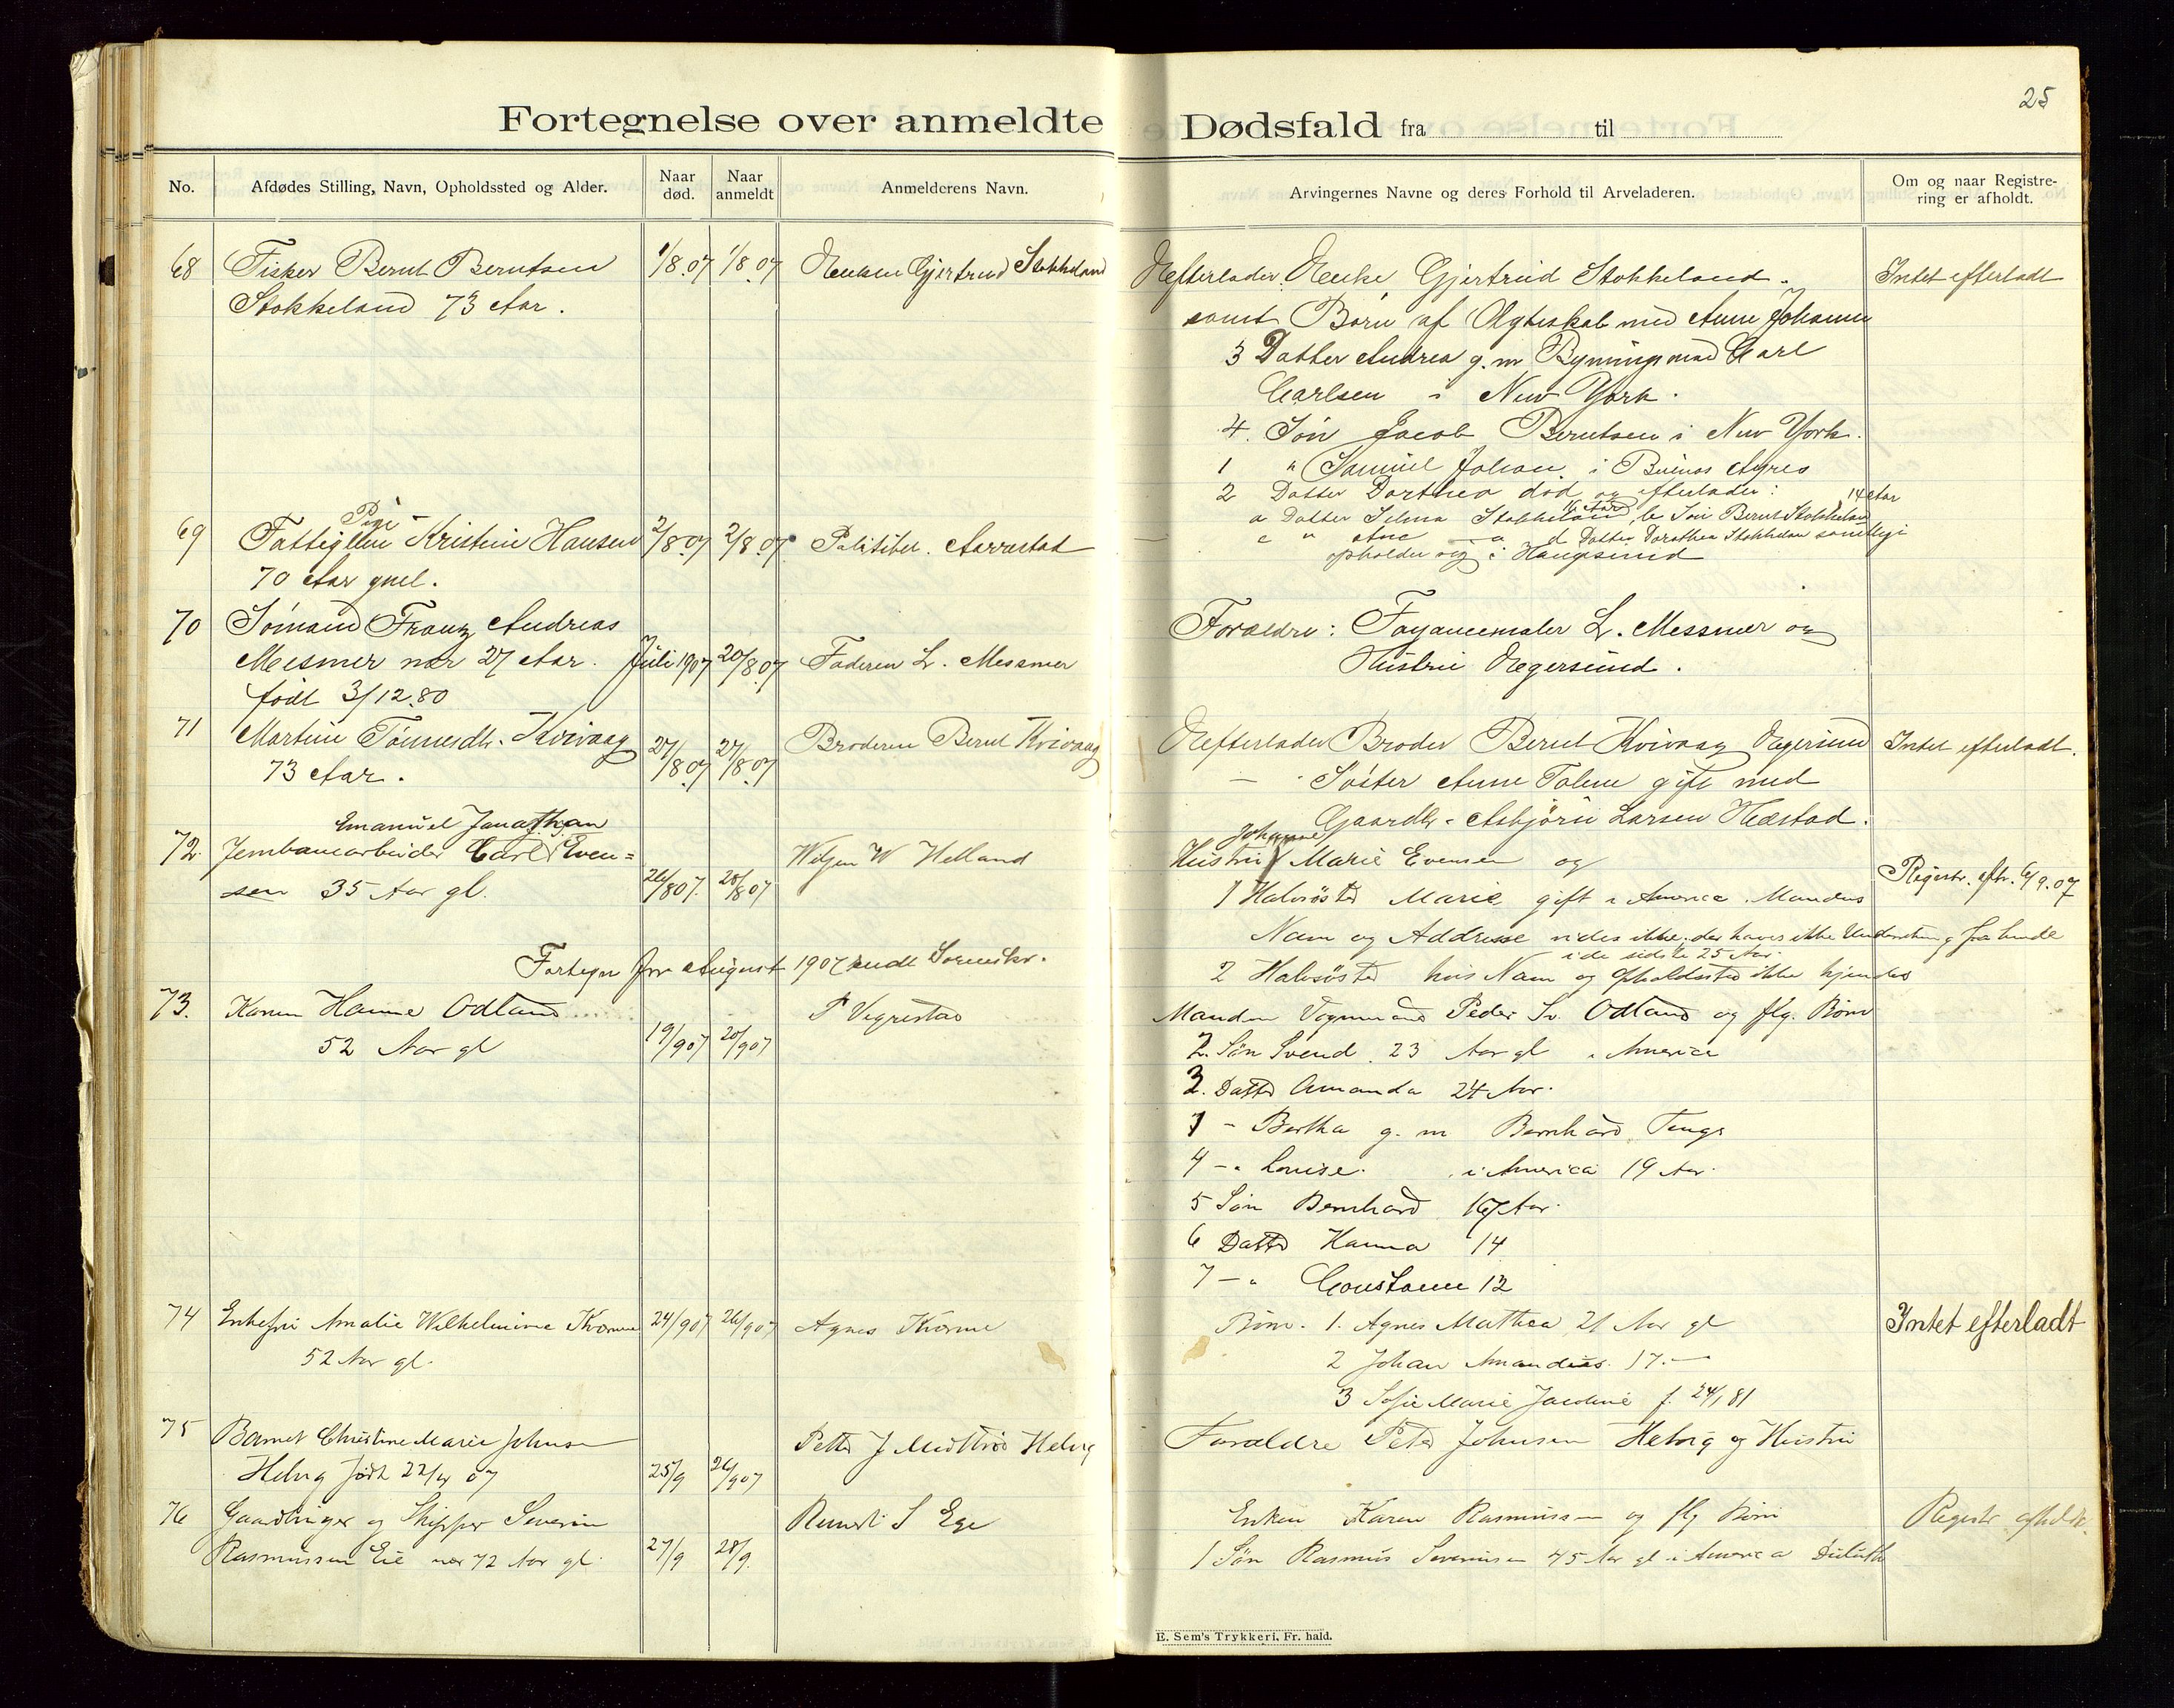 25
Fortegnelse over anmeldte Dødsfald fra til
No. Afdødes Stilling, Navn, Opholdssted og Alder. Naar død. Naar anmeldt Anmelderens Navn. Arvingernes Navne og deres Forhold til Arveladeren. Om og naar Registrering er afholdt.
68 Fisker Bernt Berntsen 1/8.07 1/8.07 Enken Gjertrud Stokkeland
Stokkeland 73 Aar.
Efterlader Enke Gjertrud Stokkeland. Intet efterladt
samt Børn af Ægteskab med Anne Johanne
3 Datter Andrea g. m Bygningsmand Carl
Carlsen i New York.
4. Søn Jacob Berntsen i New York.
1 " Samuel Johan i Buenos Ayres
2 Datter Dorthea død og efterlader: 14 Aar
a Datter Selma Stokkeland 16 Aar, b Søn Bernt Stokkeland
c " d Datter Dorothea Stokkeland samtlige
opholder sig i Haugesund
69 Fattiglem Pige Kristine Hansen 2/8.07 2/8.07 Politibet. Aarrestad
70 Aar gml.
70 Sømand Franz Andreas
Mesmer nær 27 Aar. Juli 1907 20/8.07 Faderen L. Messmer
født 3/12.80
Forældre: Fayancemaler L. Messmer og
Hustru Egersund.
71 Martine Tønnesdtr. Kvivaag 27/8.07 27/8.07 Broderen Bernt Kvivaag
73 Aar.
Efterlader Broder Bernt Kvivaag Egersund Intet efterladt.
— Søster Anne Tolene gift med
Gaardbr. Asbjørn Larsen Hæstad.
Emanuel Jonathan
72. Jernbanearbeider Carl Even=
sen 35 Aar gl. 26/807. 28/807 W Helland
Johanne
Hustru Marie Evensen og
1 Halvsøster Marie gift i America. Mandens Registr. afh. 6/9.07
Navn og Addresse vides ikke, der haves ikke Underretning fra hende
i de sidste 25 Aar.
2 Halvsøster hvis Navn og Opholdssted ikke kjendes
Fortegn for August 1907 sendt Sorenskr.
73. Karen Hanne Odland 19/907 20/907 P Vegrestad
52 Aar gl
Manden Vognmand Peder Odland og flg. Børn
2. Søn Svend 23 Aar gl i America
3. Datter Amanda 24 Aar.
1 - Bertha g. m Bernhard Tengs
4 — " Louise. i America 19 Aar.
5 Søn Bernhard 16 Aar.
6 Datter Hanna 14
7 — " Constanse 12
74 Enkefru Amalie Wilhelmine 24/907 26/907 Agnes
52 Aar gl.
Børn. 1. Agnes Mathea 21 Aar gl Intet efterladt
2 Johan Amandus 17.—
3 Sofie Marie Jacobine f. 24/1 81
75 Barnet Christine Marie Johnsen
Helvig født 22/4 07 25/9 26/907 Petter J Helvig
Forældre Peter Johnsen Helvig og Hustru
76 Gaardbruger og Skipper Severin S Ege
Rasmussen Eie nær 72 Aar gl. 27/9 28/9.
Enken Karen Rasmussen og flg Børn Registr afholdt.
1 Søn Rasmus Severinsen 45 Aar gl i America Duluth
E. Sem's Trykkeri, Fr. hald.